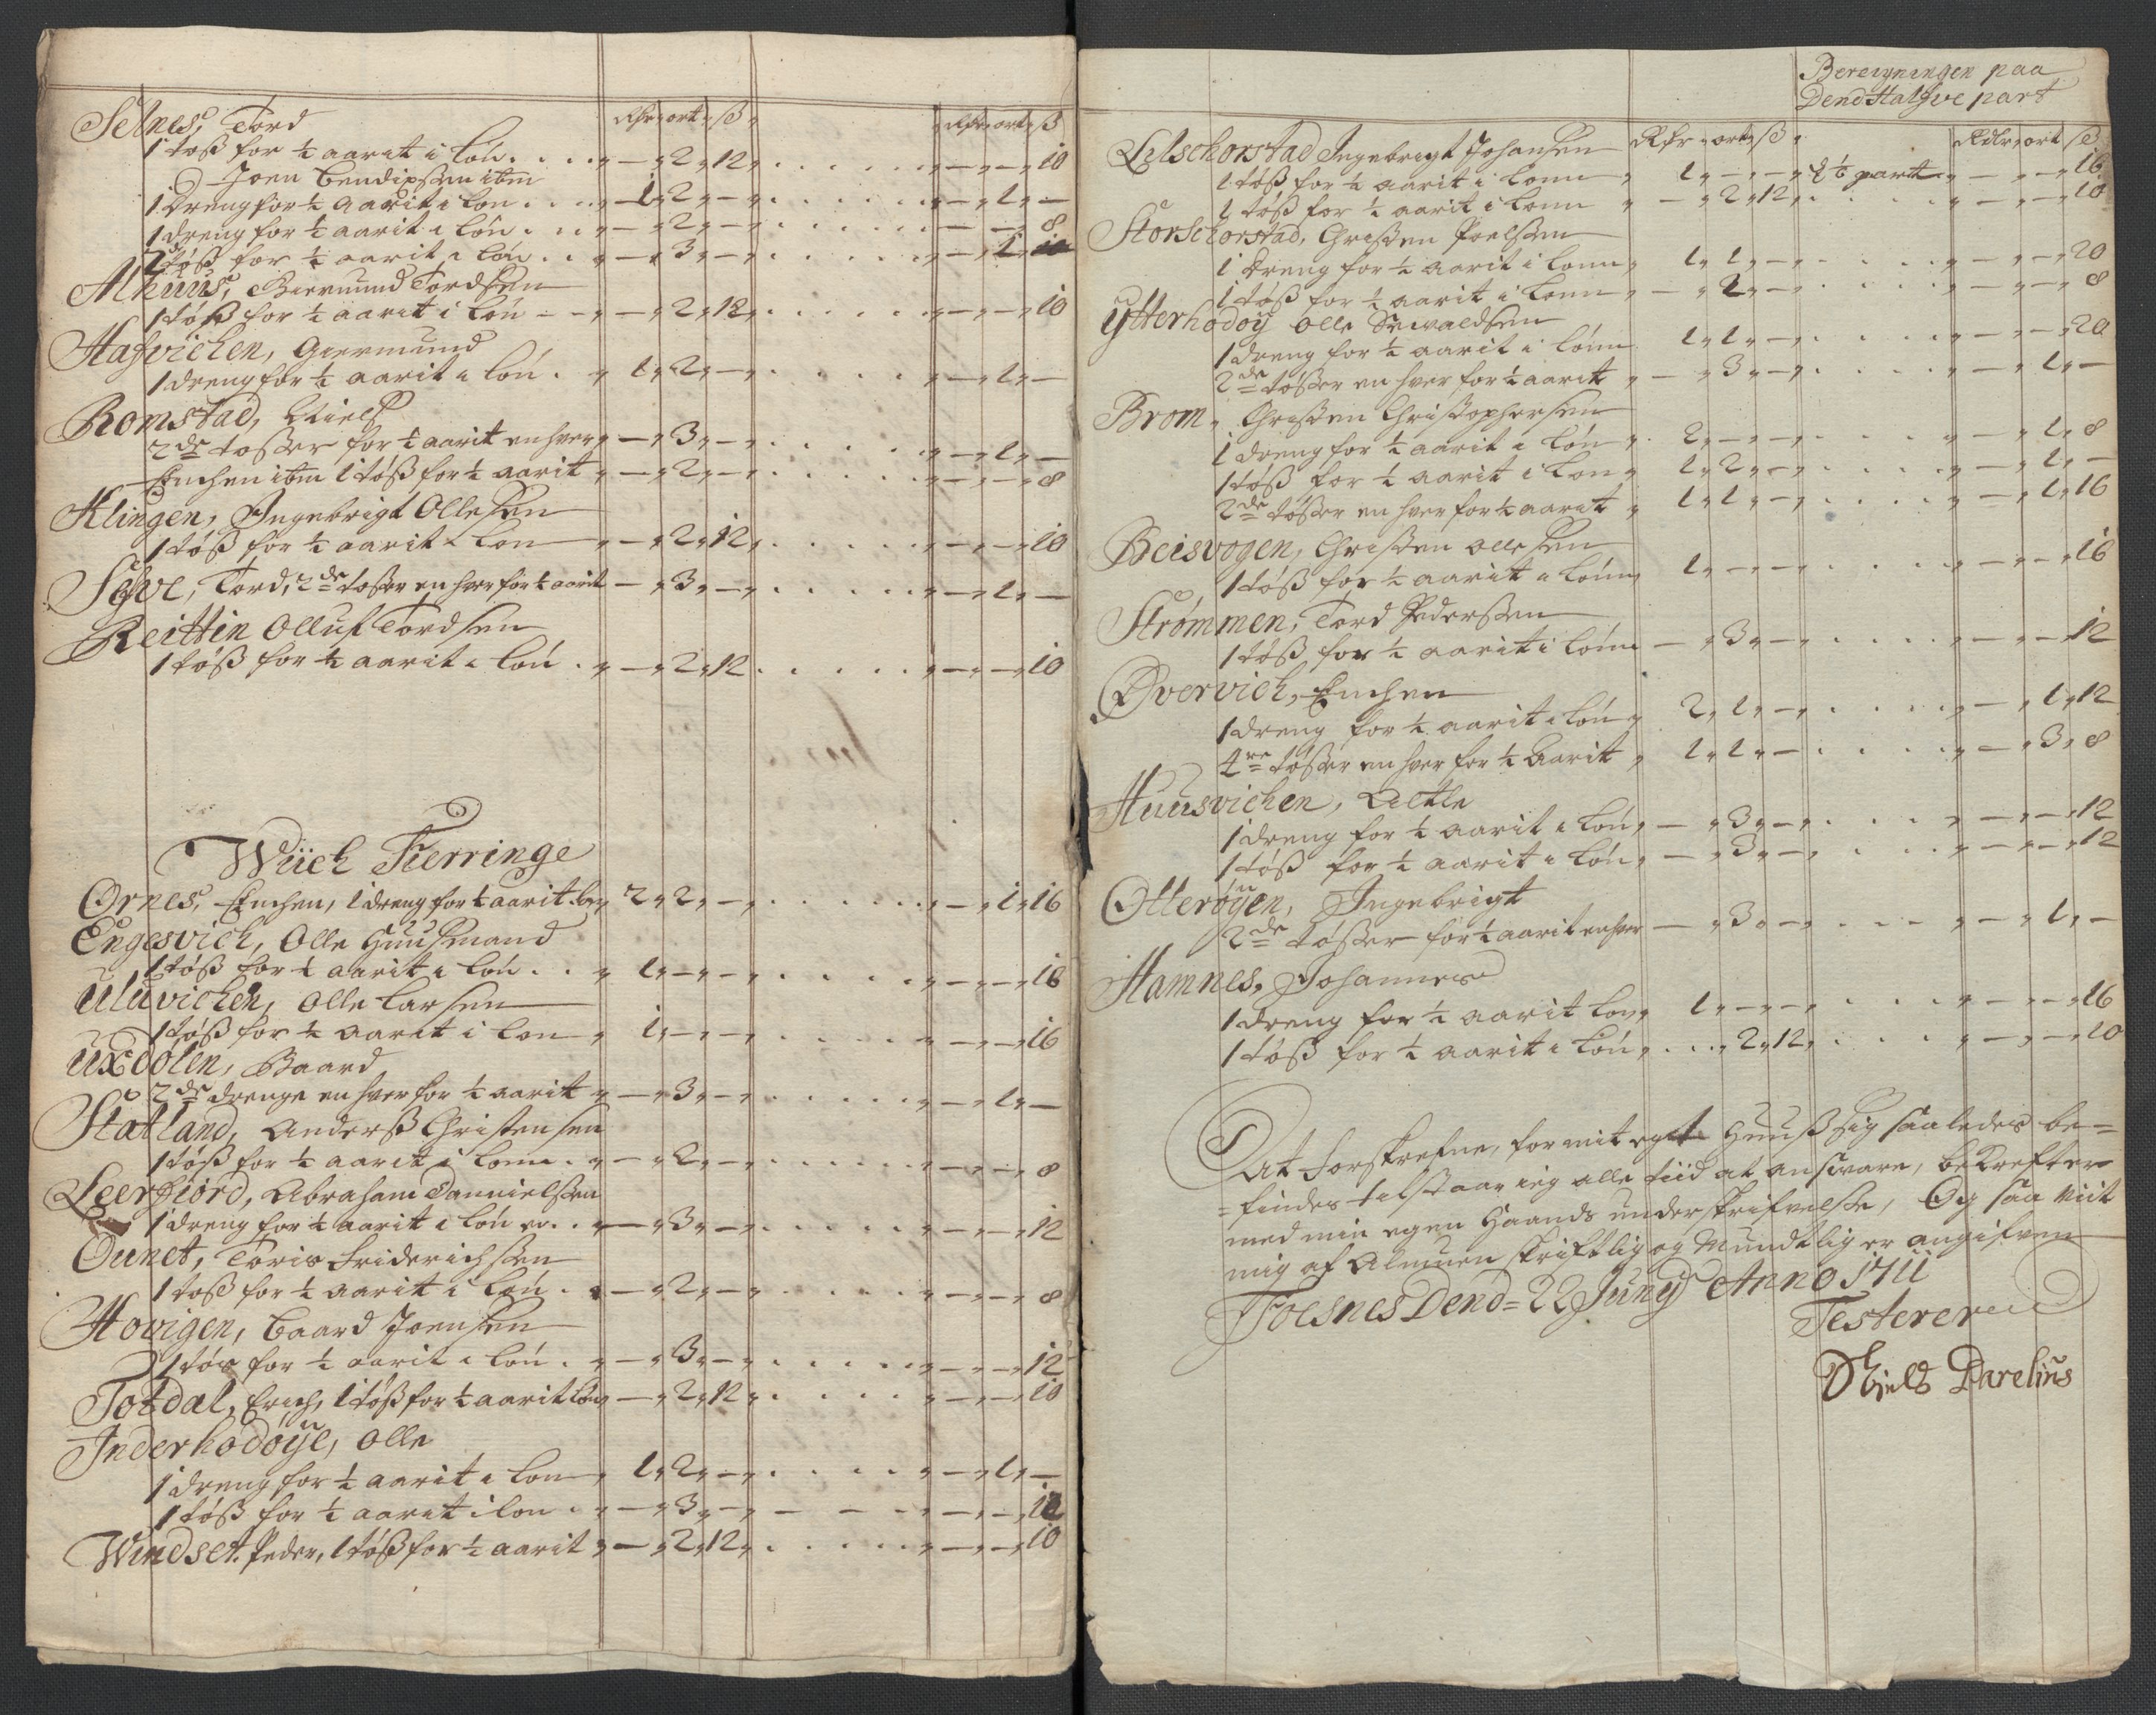 Selnes, Tord
Rdr ort ß
Rdr ort ß
1 tøß for ½ aarit i løn . . . . — 2 12 . . . . . — — 10
Joen Bendixsen ibm
1 Dreng for ½ aarit i løn . . . 1 2 — . . . . . — 1 —
1 dreng for ½ aarit i løn . . . — 2 — . . . . . — — 8
2de tøß for ½ aarit i løn . . — 3 — . . . . . — 1
Alhuus, Giermund Tordsen
1 tøß for ½ aarit i løn — — 2 12 . . . . . — — 10
Hafvichen, Giermund
1 dreng for ½ aarit i løn . 1 2 — . . . . . — 1 —
Romstad, Niels
2de tøsser for ½ aarit en hver — 3 — . . . . . — 1 —
Enchen ibm 1 tøß for ½ aarit — 2 — . . . . . — — 8
Klingen, Ingebrigt Ollesen
1 tøß for ½ aarit i løn — 2 12 . . . . . — — 10
Sefve, Tord, 2de tøsser en hver for ½ aarit — 3 — . . . . . — 1 —
Reittin Olluf Tordsen
1 tøß for ½ aarit i løn . — 2 12 . . . . . — — 10
Wiich Fierringe
Ornes, Enchen, 1 dreng for ½ aarit løn 2 2 — . . . . . — 1 16
Engesvich, Olle Huusmand
1 tøß for ½ aarit i løn . . 1 — — . . . . . — — 16
Uluvichen, Olle Larsen
1 tøß for ½ aarit i løn 1 — — . . . . . — — 16
Uxdolen, Baard
2de drenge en hver for ½ aarit — 3 — . . . . . — 1 —
Statland, Anders Christensen
1 tøß for ½ aarit i lønn . — 2 — . . . . . — — 8
Leerfiord, Abraham Dannielsen
1 dreng for ½ aarit i løn . . — 3 — . . . . . — — 12
Ounet, Toris Friderichsen
1 tøß for ½ aarit i løn . — 2 — . . . . . — — 8
Hovigen, Baard Joensen
1 tøs for ½ aarit i løn . — 3 — . . . . . — — 12
Totdal, Erich, 1 tøß for ½ aarit løn — 2 12 . . . . . — — 10
Inderhodøÿe, Olle
1 dreng for ½ aarit i løn 1 2 — . . . . . — 1 —
1 tøß for ½ aarit i løn . — 3 — — — — — — 12
Windset. Peder, 1 tøß for ½ aarit — 2 12 . . . . . — — 10
Bereigningen paa
Dend Halfve part
Lilschorstad Ingebrigt Johansen Rdr ort ß Rdlr ort ß
1 tøß for ½ aarit i lønn 1 — — part — — 16
1 tøß for ½ aarit i lønn — 2 12 . . . . — — 10
Storschorstad, Christen Poelsen
1 Dreng for ½ aarit i lønn 1 1 — . . . . — — 20
1 tøß for ½ aarit i lønn — 2 — . . . . — — 8
Ytterhodøÿ Olle Sewaldsen
1 dreng for ½ aarit i lønn 1 1 — . . . . — — 20
2de tøsser en hver for ½ aarit — 3 — . . . . — 1 —
Brom, Christen Christophersen
1 dreng for ½ aarit i løn 2 — — . . . . — 1 8
1 tøß for ½ aarit i løn 1 2 — . . . . — 1 —
2de tøsser en hver for ½ aarit 1 1 — . . . . — 1 16
Reisvogen, Christen Ollesen
1 tøß for ½ aarit i lønn 1 — — . . . . — — 16
Strømmen, Tord Pedersen
1 tøß for ½ aarit i lønn — 3 — . . . . — — 12
Øvervich, Enchen
1 dreng for ½ aarit i løn 2 1 — . . . . — 1 12
4re tøsser en hver for ½ aarit 1 1 — . . . . — 3 8
Huusvichen, Attle
1 dreng for ½ aarit i løn — 3 — . . . — — 12
1 tøß for ½ aarit i løn — 3 — . . . — — 12
Otterøÿen, Ingebrigt
2de tøsser for ½ aarit en hver — 3 — . . . — 1 —
Hamnes, Johannes
1 dreng for ½ aarit løn 1 — — . . . — — 16
1 tøß for ½ aarit i løn . . . 2 12 . . . — — 10
At forskrefne, for mit eget Huuß sig saaledes be=
=findes tilstaar ieg alle tiid at ansvare, bekrefter
med min egen Haands underskrifvelse, Og saa Viit
mig af Almuen skriftlig og Mundtlig er angifven
Foesnes Dend= 22 Junÿ Anno 1711
Testerer
Niels Parelius